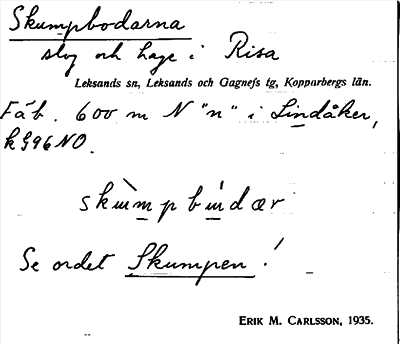 Skumpbodarna
slog och hage i Risa
Leksands sn, Leksands och Gagnefs tg, Kopparbergs län.
Fäb. 600 m N "n" i Lindåker,
k 996 NO.
Se ordet Skumpen!
ERIK M. CARLSSON, 1935.